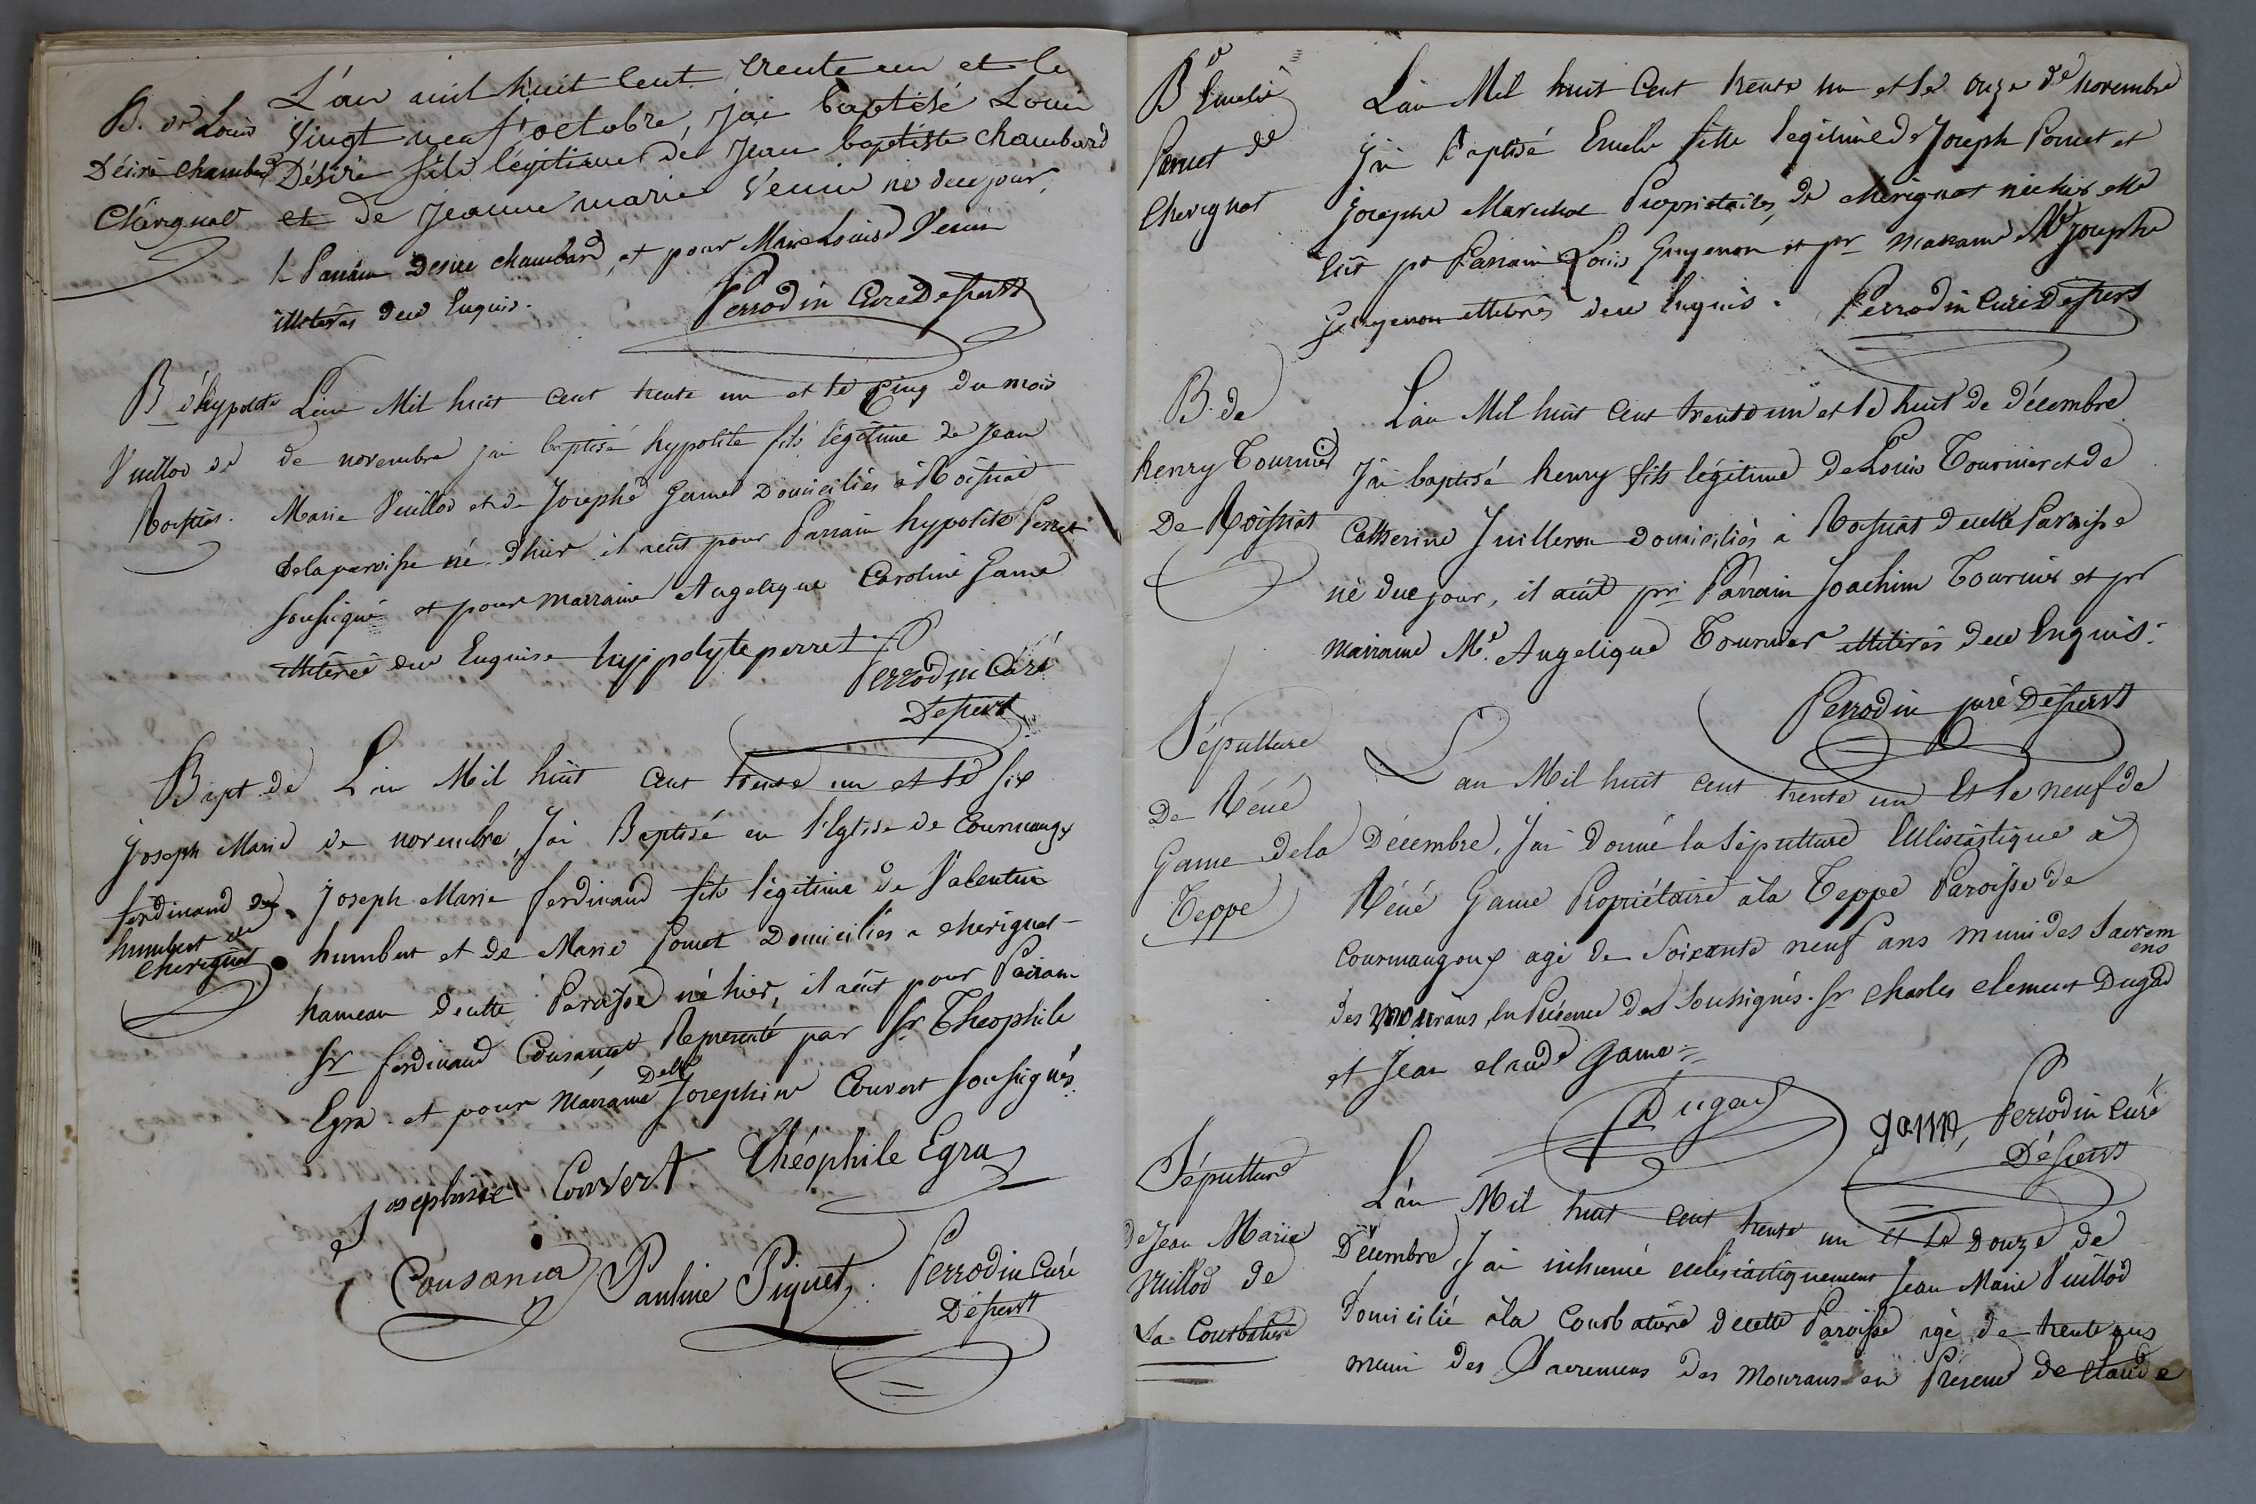 B. de Louis
Désiré chambard
Chérignat
L'an mil huit cent trente un et le
vingt neuf octobre, j'ai baptisé Louis
Désiré fils légitime de Jean baptiste chambard
et de jeanne marie Venin né dece jour,
le Parrain Desire chambard, et pour Mar. Louise Venin
illiterés dece Enquis.
Perrodin Curé Desserst
B d'hypolite
Vuillod de
Roissiat.
L'an Mil huit cent trente un et le cinq du mois
de novembre j'ai baptisé hypolite fils légitime de Jean
Marie Vuillod et de Josephe Game Domiciliés à Roissiat
de la paroisse né d'hier il a eût pour Parrain hypolite Perret
soussigné et pour marraine Angelique Caroline Game
illiterée dece Enquise hyppolyte perret
Perrodin Curé
Desserst
Bapt. de
Joseph Marie
ferdinand de
humbert de
cherignat
L'an Mil huit cent trente un et le six
de novembre, J'ai Baptisé en l'Eglise de Courmangoux
Joseph Marie ferdinand fils légitime de Valentin
humbert et de Marie Pomet Domiciliés a cherignat
hameau decette Paroisse né hier, il a eût pour Parain
Sr ferdinand Cousança, Representé par Sr Theophile
Egra et pour Maraine Delle Josephine Couvert soussignés.
Josephine Convert Théophile Egra
Cousança Pauline Piquet Perrodin Curé
Désserst
Be Emelie
Pomet de
Cherignat
L'an Mil huit Cent trente un et le onze de novembre
J'ai Baptisé Emelie fille legitime de Joseph Pomet et
josephe Marechal Propriétaires, de cherignat née hier elle
eût pr Parrain Louis Guyenon et pr maraine Me Josephe
Guyenon illiterés dece Enquis. Perrodin Curé Desserst
B. de
henry Tournier
De Roissiat
L'an Mil huit Cent trente un et le huit de décembre
J'ai baptisé henry fils légitime de Louis Tournier et de
Catherine Juilleron domiciliés à Roissiat decette Paroisse
né duce jour, il a eût pr Parrain Joachim Tournier et pr
Marraine Me. Angelique Tournier illiterés dece Enquis.
Perrodin curé Désserst
Sépulture
De Réné
Game dela
Teppe
L'an Mil huit cent trente un Et le neuf de
Décembre, J'ai donné la Sépulture Ecclésiastique à
Réné Game Propriétaire à la Teppe Paroisse de
Courmangoux agé de Soixante neuf ans muni des Sacrem
ens
des mourans, en Présence des Soussignés. Sr Charles Clement Dugad
et Jean claude Game.
Dugad game, Perrodin Curé
Désserst
Sépulture
de Jean Marie
Vuillod de
La Courbatière
L'an Mil huit cent trente un et le Douze de
Décembre, J'ai inhumé ecclésiastiquement Jean Marie Vuillod
Domicilié à la Courbatière decette Paroisse agé de trente ans
muni des Sacremens des Mourans en Présence de Claude